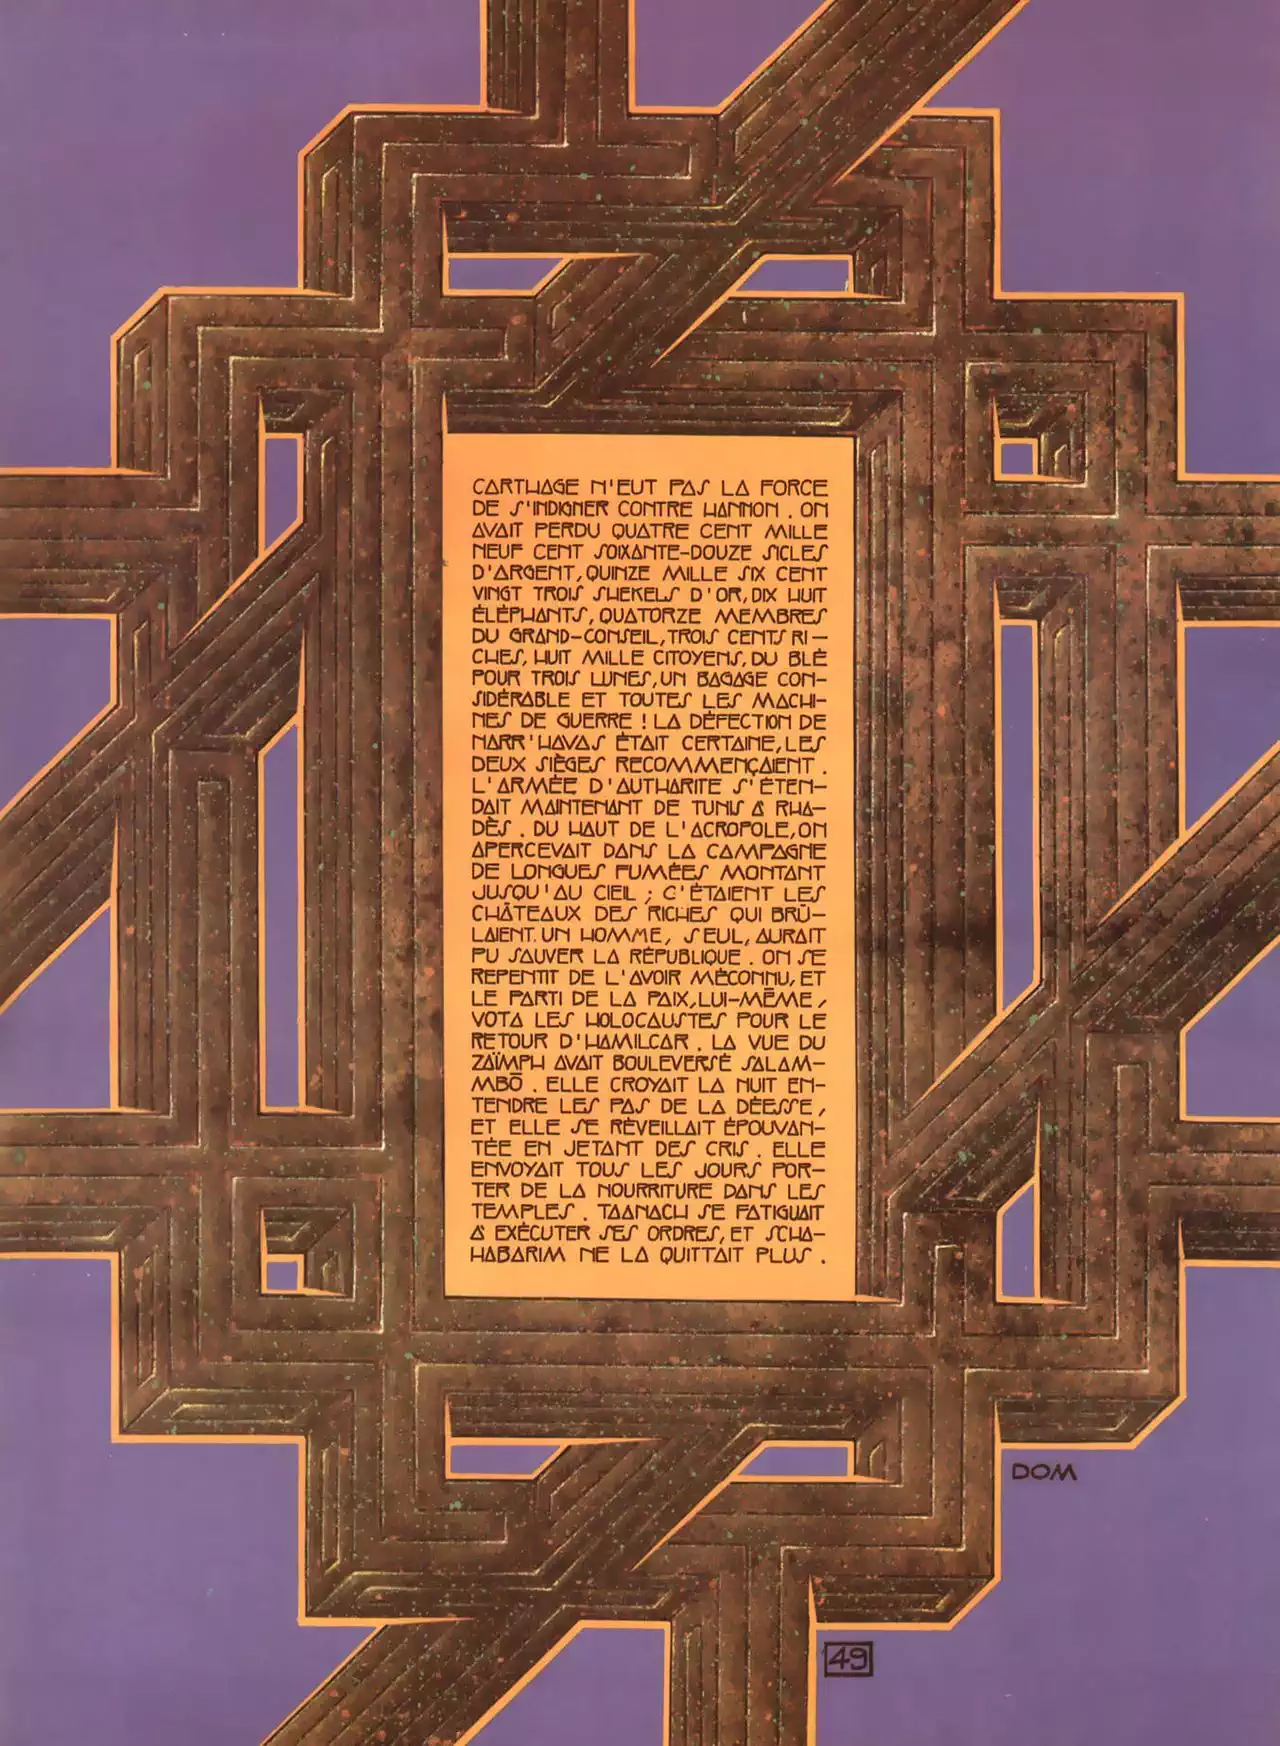 CARTHAGE N'EUT PAS LA FORCE
DE S'INDIGNER CONTRE HANNON . ON
AVAIT PERDU QUATRE CENT MILLE
NEUF CENT SOIXANTE-DOUZE SICLES
D'ARGENT, QUINZE MILLE SIX CENT
VINGT TROIS SHEKELS D'OR, DIX HUIT
ÉLÉPHANTS, QUATORZE MEMBRES
DU GRAND-CONSEIL, TROIS CENTS RI-
CHES, HUIT MILLE CITOYENS, DU BLÉ
POUR TROIS LUNES, UN BAGAGE CON-
SIDÉRABLE ET TOUTES LES MACHI-
NES DE GUERRE ! LA DÉFECTION DE
NARR'HAVAS ÉTAIT CERTAINE, LES
DEUX SIÈGES RECOMMENÇAIENT .
L'ARMÉE D'AUTHARITE S'ÉTEN-
DAIT MAINTENANT DE TUNIS À RHA-
DÈS . DU HAUT DE L'ACROPOLE, ON
APERCEVAIT DANS LA CAMPAGNE
DE LONGUES FUMÉES MONTANT
JUSQU'AU CIEL ; C'ÉTAIENT LES
CHÂTEAUX DES RICHES QUI BRÛ-
LAIENT. UN HOMME, SEUL, AURAIT
PU SAUVER LA RÉPUBLIQUE . ON SE
REPENTIT DE L'AVOIR MÉCONNU, ET
LE PARTI DE LA PAIX, LUI-MÊME,
VOTA LES HOLOCAUSTES POUR LE
RETOUR D'HAMILCAR . LA VUE DU
ZAÏMPH AVAIT BOULEVERSÉ SALAM-
MBÔ . ELLE CROYAIT LA NUIT EN-
TENDRE LES PAS DE LA DÉESSE,
ET ELLE SE RÉVEILLAIT ÉPOUVAN-
TÉE EN JETANT DES CRIS . ELLE
ENVOYAIT TOUS LES JOURS POR-
TER DE LA NOURRITURE DANS LES
TEMPLES . TAANACH SE FATIGUAIT
À EXÉCUTER SES ORDRES, ET SCHA-
HABARIM NE LA QUITTAIT PLUS .
DOM
49